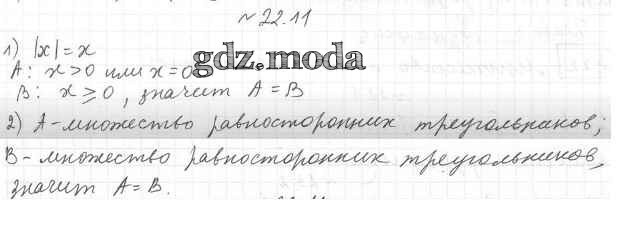 №22.11
1) |x| = x
A: x > 0 или x = 0
gdz.moda
B: x ⩾ 0, значит A = B
2) A - множество равносторонних треугольников;
B - множество равносторонних треугольников,
значит A = B.